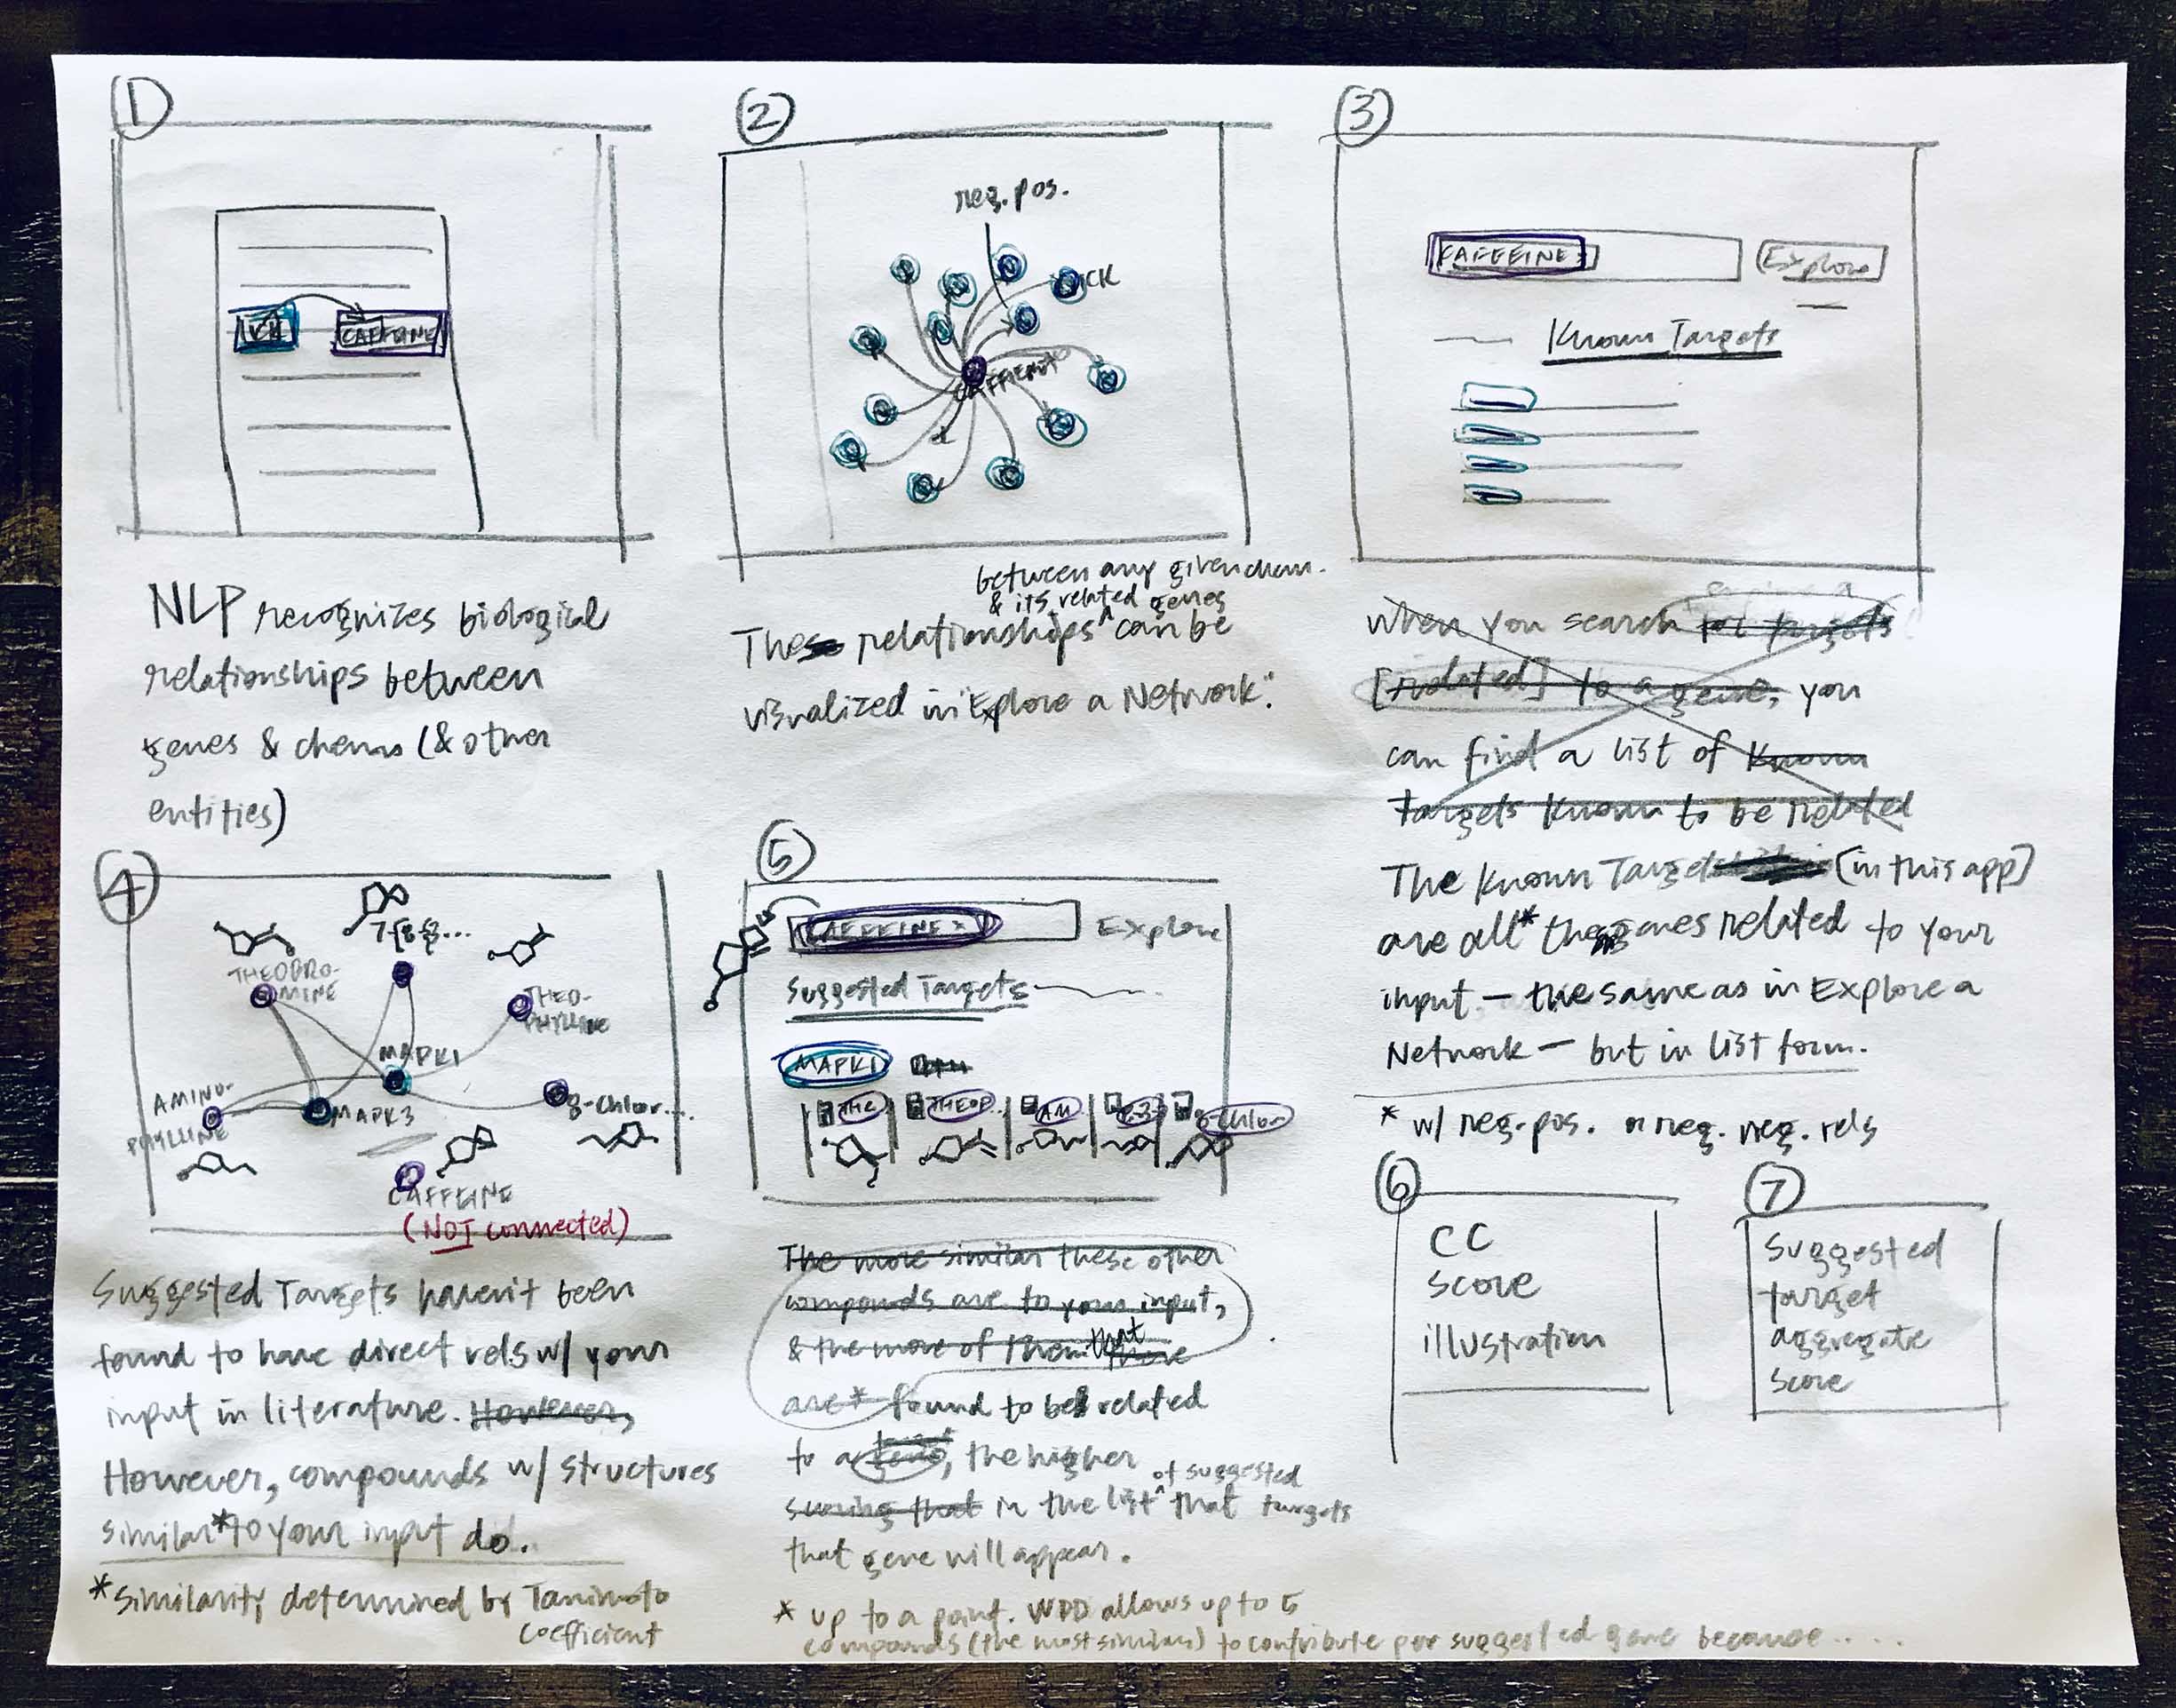 1
CAFFEINE
NLP recognizes biological
relationships between
genes & chems (& other
entities)
2
reg. pos.
CK
CAFFIENE
between any given chem.
& its related genes
These relationships ^ can be
visualized in "Explore a Network."
3
CAFFEINE x
Explore
Known Targets
when you search for targets
[related] to a gene, you
can find a list of known
targets known to be related
The Known Targets [in this app]
are all* the genes related to your
input — the same as in Explore a
Network — but in list form.
* w/ reg. pos. or reg. neg. rels
4
7-[8-8...
THEOBRO-
MINE
THEO-
PHYLLINE
MAPK1
AMINO-
PHYLLINE
MAPK3
8-chlor...
CAFFEINE
(NOT connected)
Suggested Targets haven't been
found to have direct rels w/ your
input in literature. However,
However, compounds w/ structures
similar* to your input do.
*Similarity determined by Tanimoto
coefficient
5
CAFFEINE x
Explore
Suggested Targets
MAPK1
THE
THEOP..
AM
8-chlor
The more similar these other
compounds are to your input,
& the more of them that there
are* found to be related
to a gene, the higher
of suggested
scoring that in the list ^ that targets
that gene will appear.
* up to a point. WDD allows up to 5
compounds (the most similar) to contribute per suggested gene because.....
6
CC
score
illustration
7
suggested
target
aggregate
score